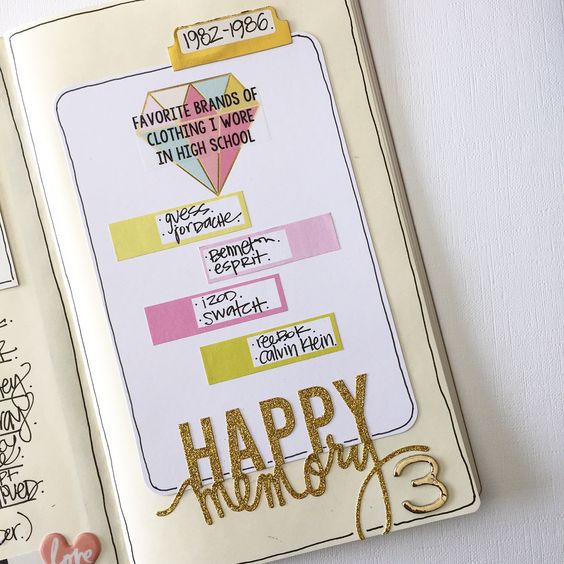 1982-1986.
FAVORITE BRANDS OF
CLOTHING I WORE
IN HIGH SCHOOL
· guess.
· jordache.
· Benneton.
· esprit.
· izod
· swatch.
· reebok.
· calvin klein.
HAPPY
memory
3
love